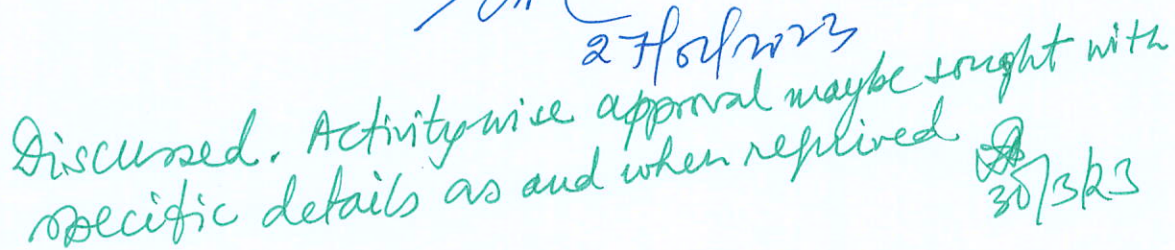 27/02/2023
Discussed. Activity-wise approval maybe sought with
specific details as and when required
30/3/23